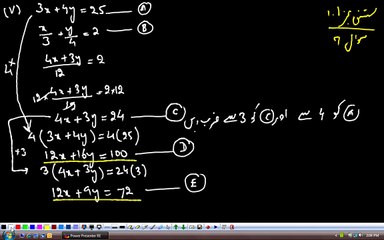 (V) 3x+4y=25 — (A)
x/3 + y/4 = 2 — (B)
(4x+3y)/12 = 2
12x (4x+3y)/12 = 2x12
4x+3y=24 — (C)
4(3x+4y)=4(25)
12x+16y=100 — (D)
3(4x+3y)=24(3)
12x+9y=72 — (E)
4x
x3
(A) کو 4 سے اور (C) کو 3 سے ضرب دیں
مشق نمبر 1.1
سوال 6